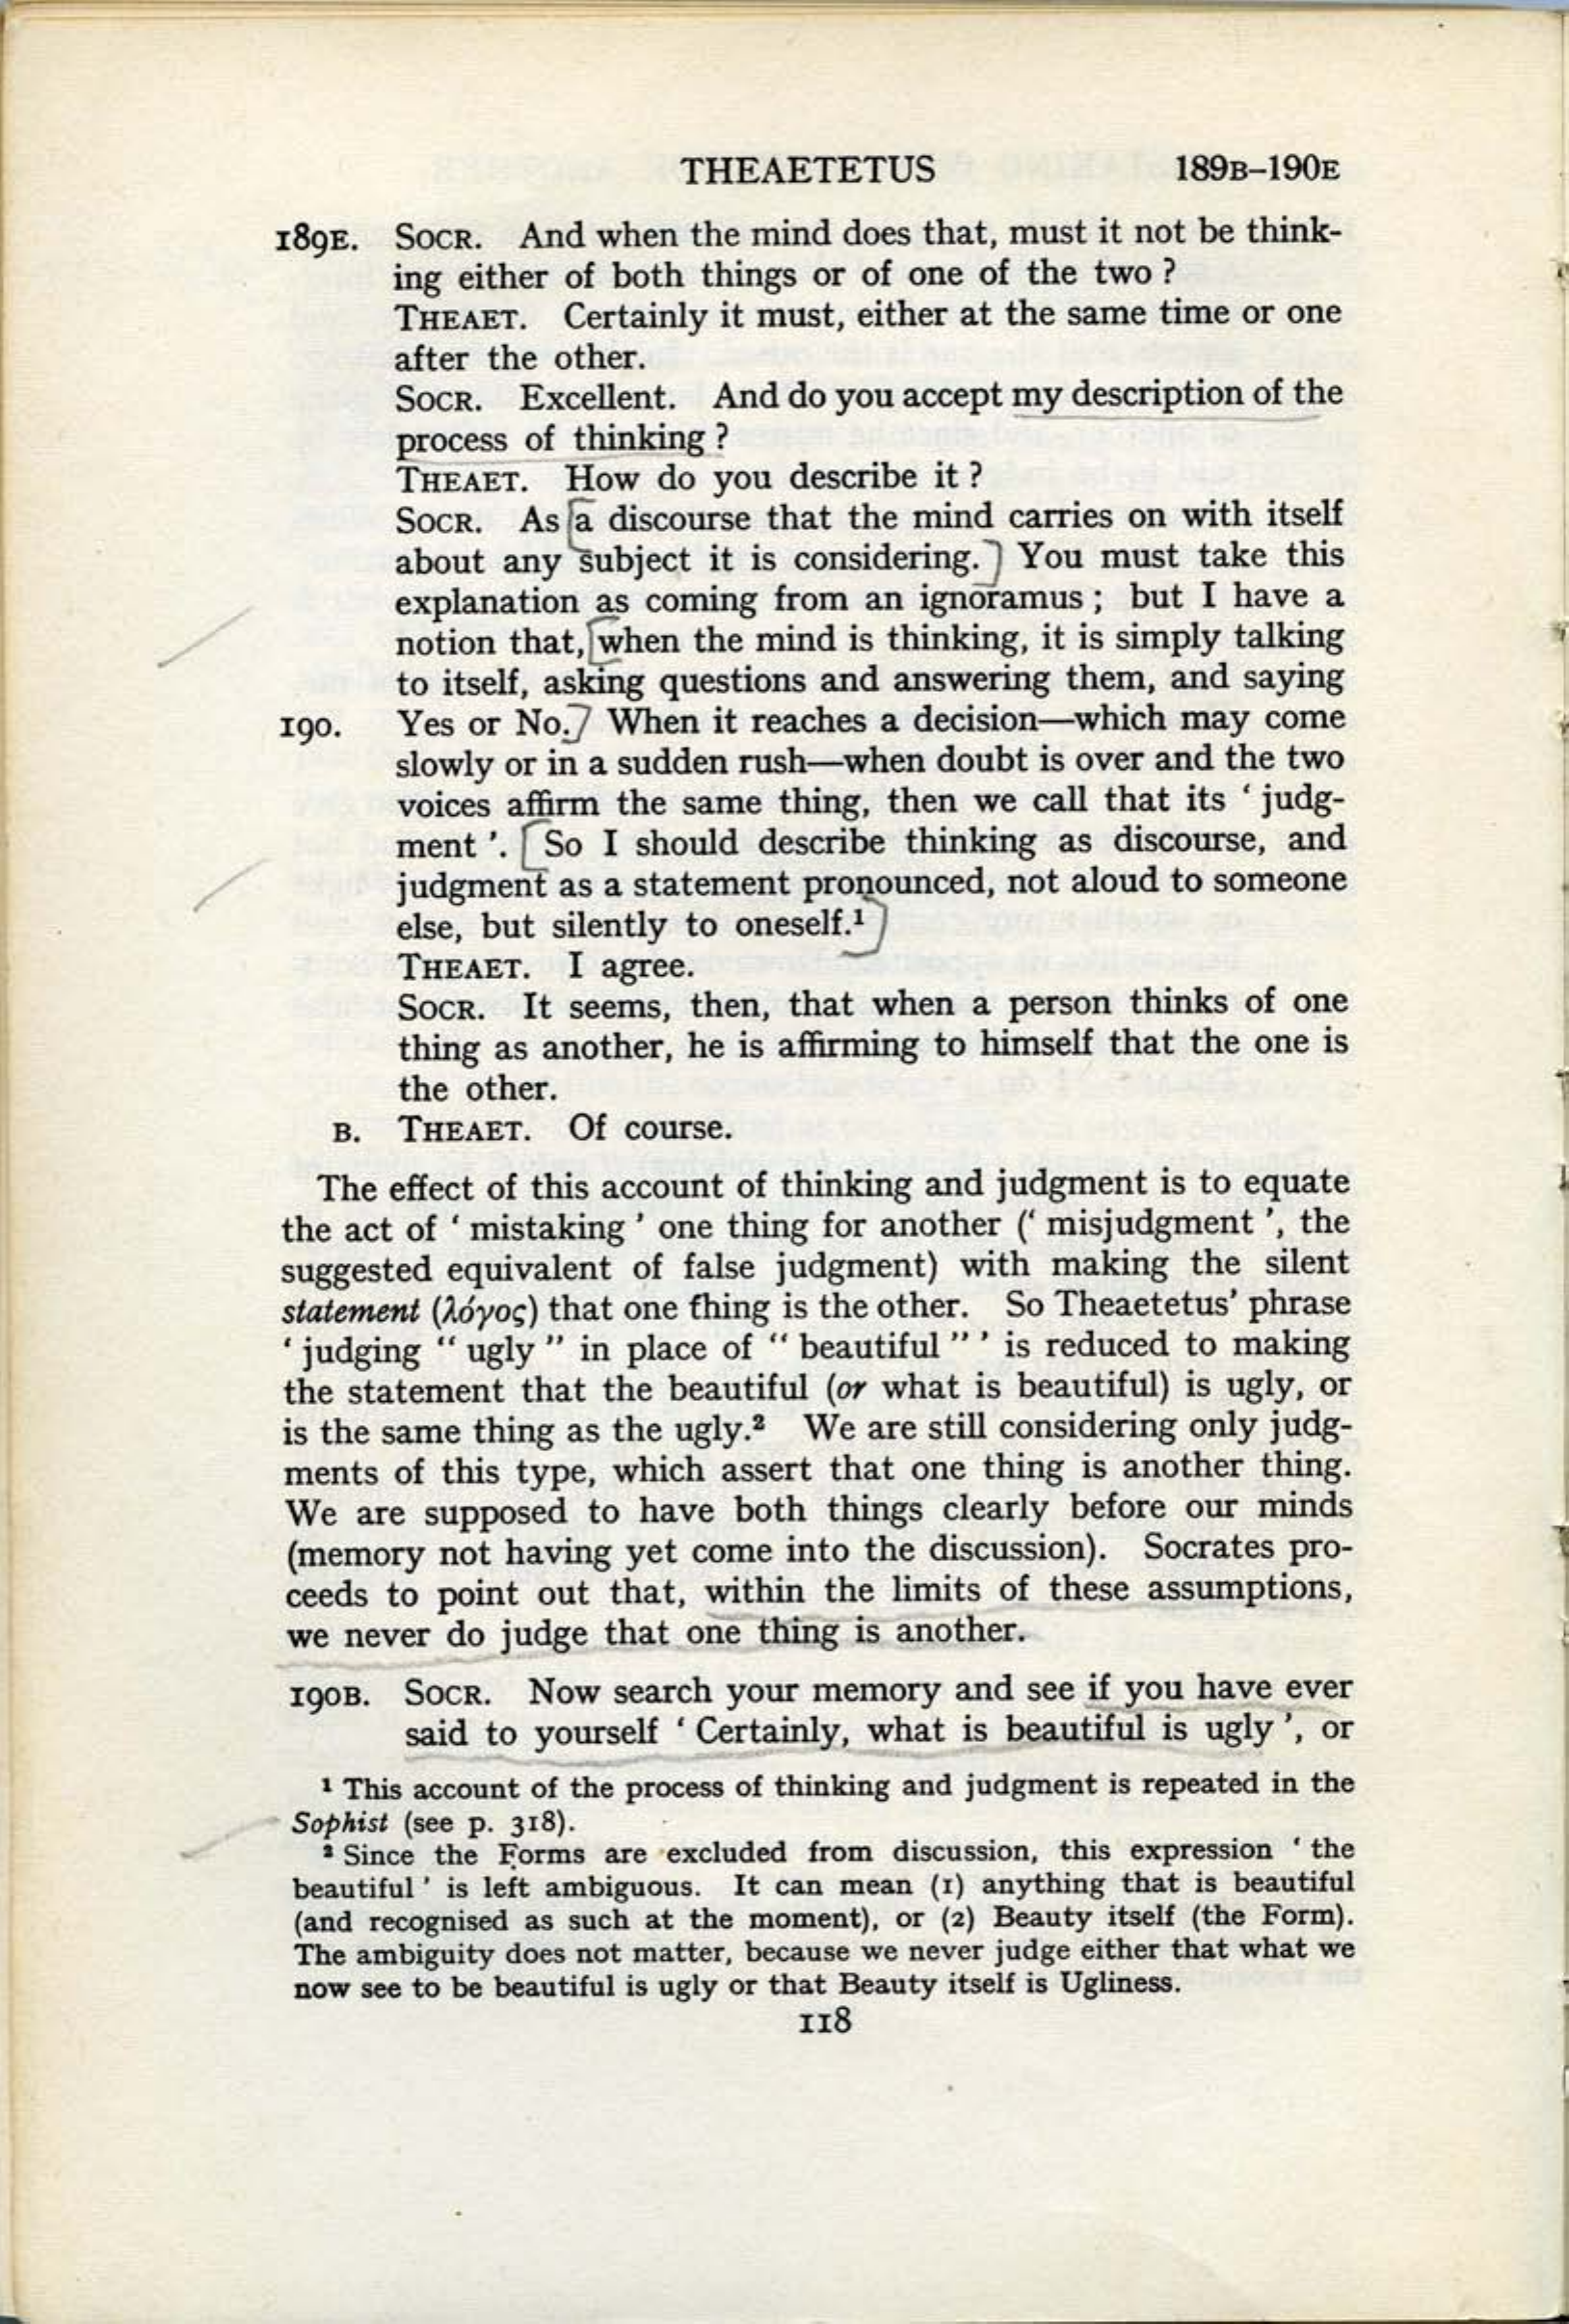 THEAETETUS 189B–190E
189E. SOCR. And when the mind does that, must it not be think-
ing either of both things or of one of the two ?
THEAET. Certainly it must, either at the same time or one
after the other.
SOCR. Excellent. And do you accept my description of the
process of thinking ?
THEAET. How do you describe it ?
SOCR. As [a discourse that the mind carries on with itself
about any subject it is considering.] You must take this
explanation as coming from an ignoramus ; but I have a
notion that, [when the mind is thinking, it is simply talking
to itself, asking questions and answering them, and saying
190. Yes or No.] When it reaches a decision—which may come
slowly or in a sudden rush—when doubt is over and the two
voices affirm the same thing, then we call that its ‘ judg-
ment ’. [So I should describe thinking as discourse, and
judgment as a statement pronounced, not aloud to someone
else, but silently to oneself.¹]
THEAET. I agree.
SOCR. It seems, then, that when a person thinks of one
thing as another, he is affirming to himself that the one is
the other.
B. THEAET. Of course.
The effect of this account of thinking and judgment is to equate
the act of ‘ mistaking ’ one thing for another (‘ misjudgment ’, the
suggested equivalent of false judgment) with making the silent
statement (λόγος) that one thing is the other. So Theaetetus’ phrase
‘ judging “ ugly ” in place of “ beautiful ” ’ is reduced to making
the statement that the beautiful (or what is beautiful) is ugly, or
is the same thing as the ugly.² We are still considering only judg-
ments of this type, which assert that one thing is another thing.
We are supposed to have both things clearly before our minds
(memory not having yet come into the discussion). Socrates pro-
ceeds to point out that, within the limits of these assumptions,
we never do judge that one thing is another.
190B. SOCR. Now search your memory and see if you have ever
said to yourself ‘ Certainly, what is beautiful is ugly ’, or
¹ This account of the process of thinking and judgment is repeated in the
Sophist (see p. 318).
² Since the Forms are excluded from discussion, this expression ‘ the
beautiful ’ is left ambiguous. It can mean (1) anything that is beautiful
(and recognised as such at the moment), or (2) Beauty itself (the Form).
The ambiguity does not matter, because we never judge either that what we
now see to be beautiful is ugly or that Beauty itself is Ugliness.
118